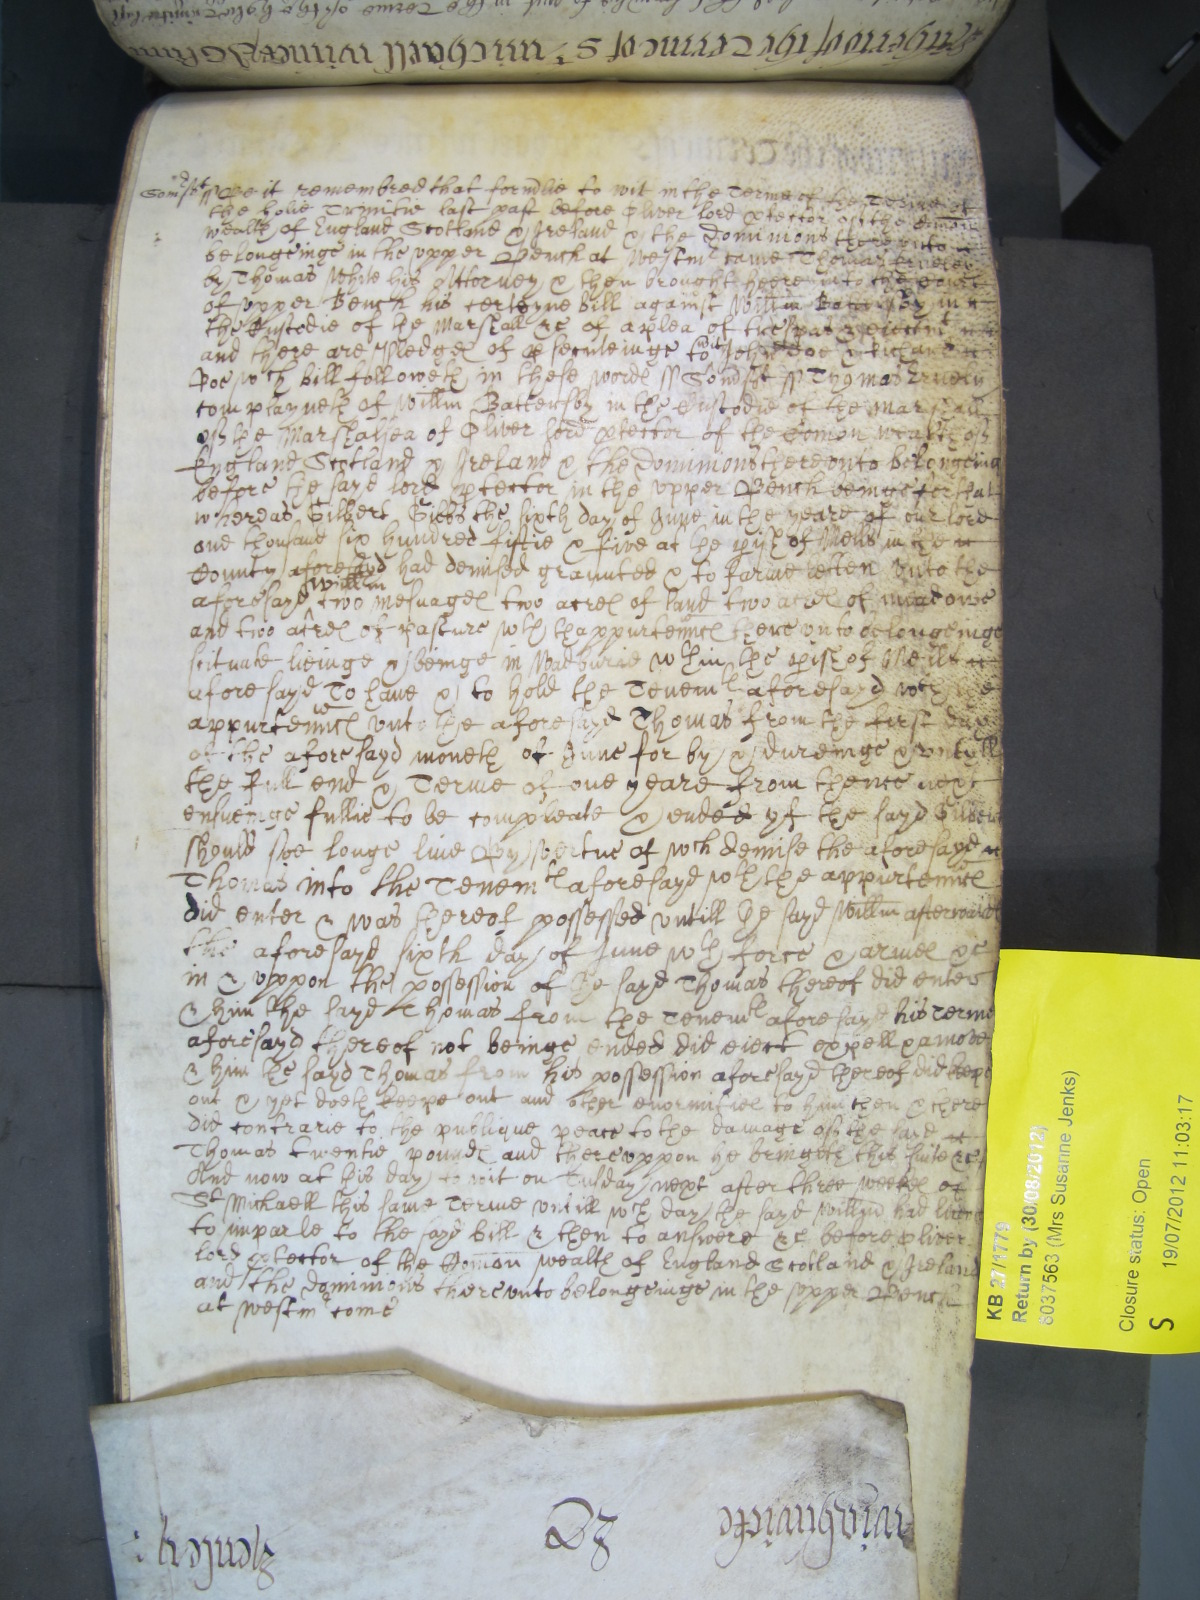 Somsset ss Be it remembred that formlie to wit in the Terme of
the holie Trinitie last past before Oliver lord ptector of the Comon
wealth of England Scotland & Ireland & the dominions thereunto
belongeinge in the upper Bench at Westmr came Thomas
by Thomas White his Attorney & then brought heere into the Court
of upper Bench his certeyne Bill against Willm Battersby in
the Custodie of the Marshall &c of a plea of trespas & eiectmt
and there are Pledges of p seculeinge to wit John Doe & Richard
Roe wch bill followeth in these words ss Somsset ss Thomas
complayneth of Willm Battersby in the Custodie of the Marshall
of the Marshalsea of Oliver lord ptector of the Comon wealth of
England Scotland & Ireland & the dominions thereunto belongeing
before the sayd lord ptector in the upper Bench beinge for that
whereas Gilbert Gibbs the sixth day of June in the yeare of our lord
one thousand six hundred fiftie & five at the pish of Mells in the
County aforesayd had demised graunted & to farme letten unto the
aforesayd Willm two mesuages two acres of land two acres of meadowe
and two acres of pasture wth thappurtenncs there unto belongeinge
scituate lieinge & beinge in Vadburie wthin the pish of Mells
aforesayd To have & to hold the Tenemts aforesayd wth the
appurtenncs unto the aforesayd Thomas from the first day
of the aforesayd moneth of June for by & dureinge & untill
the full end & Terme of one yeare from thence next
ensueinge fullie to be compleate & ended yf the sayd Gilbert
should soe longe live By vertue of wch demise the aforesayd
Thomas into the Tenemts aforesayd wth the appurtenncs
did enter & was thereof possessed untill he sayd Willm afterwards
the aforesayd sixth day of June wth force & armes &c
in & uppon the possession of the sayd Thomas thereof did enter
& him the sayd Thomas from the Tenemts aforesayd his Terme
aforesayd thereof not beinge ended did eiect expell & amove
& him the sayd Thomas from his possession aforesayd thereof did keepe
out & yet doeth keepe out and other enormities to him then & there
did contrarie to the publique peace to the damage of the said
Thomas twentie pounds and thereuppon he bringeth this suite &c
And now at his day to wit on Tusday next after three weekes of
St Michaell this same Terme untill wch day the sayd Willm had licence
to imparle to the sayd bill & then to answere &c before Oliver
lord ptector of the Comon wealth of England Scotland & Ireland
and the dominions thereunto belongeinge in the upper Bench
at Westmr come
KB 27/1779
Return by (30/08/2012)
8037563 (Mrs Susanne Jenks)
Closure status: Open
S 19/07/2012 11:03:17